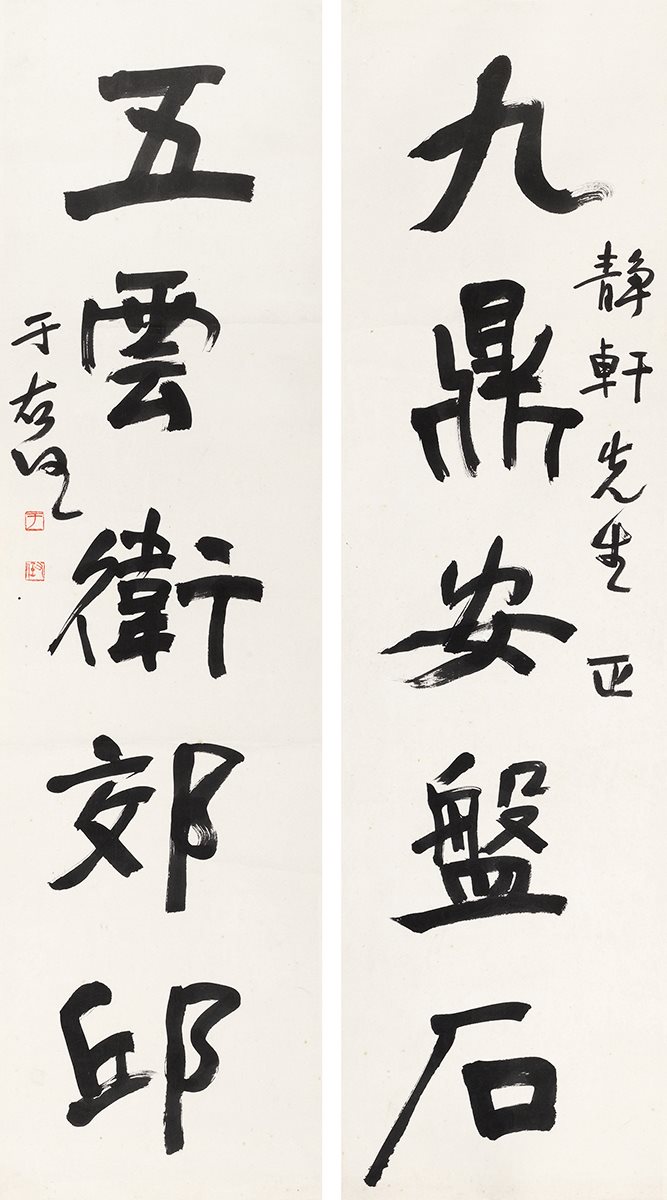 九鼎安盤石
靜軒先生正
五雲衛郊邱
于右任